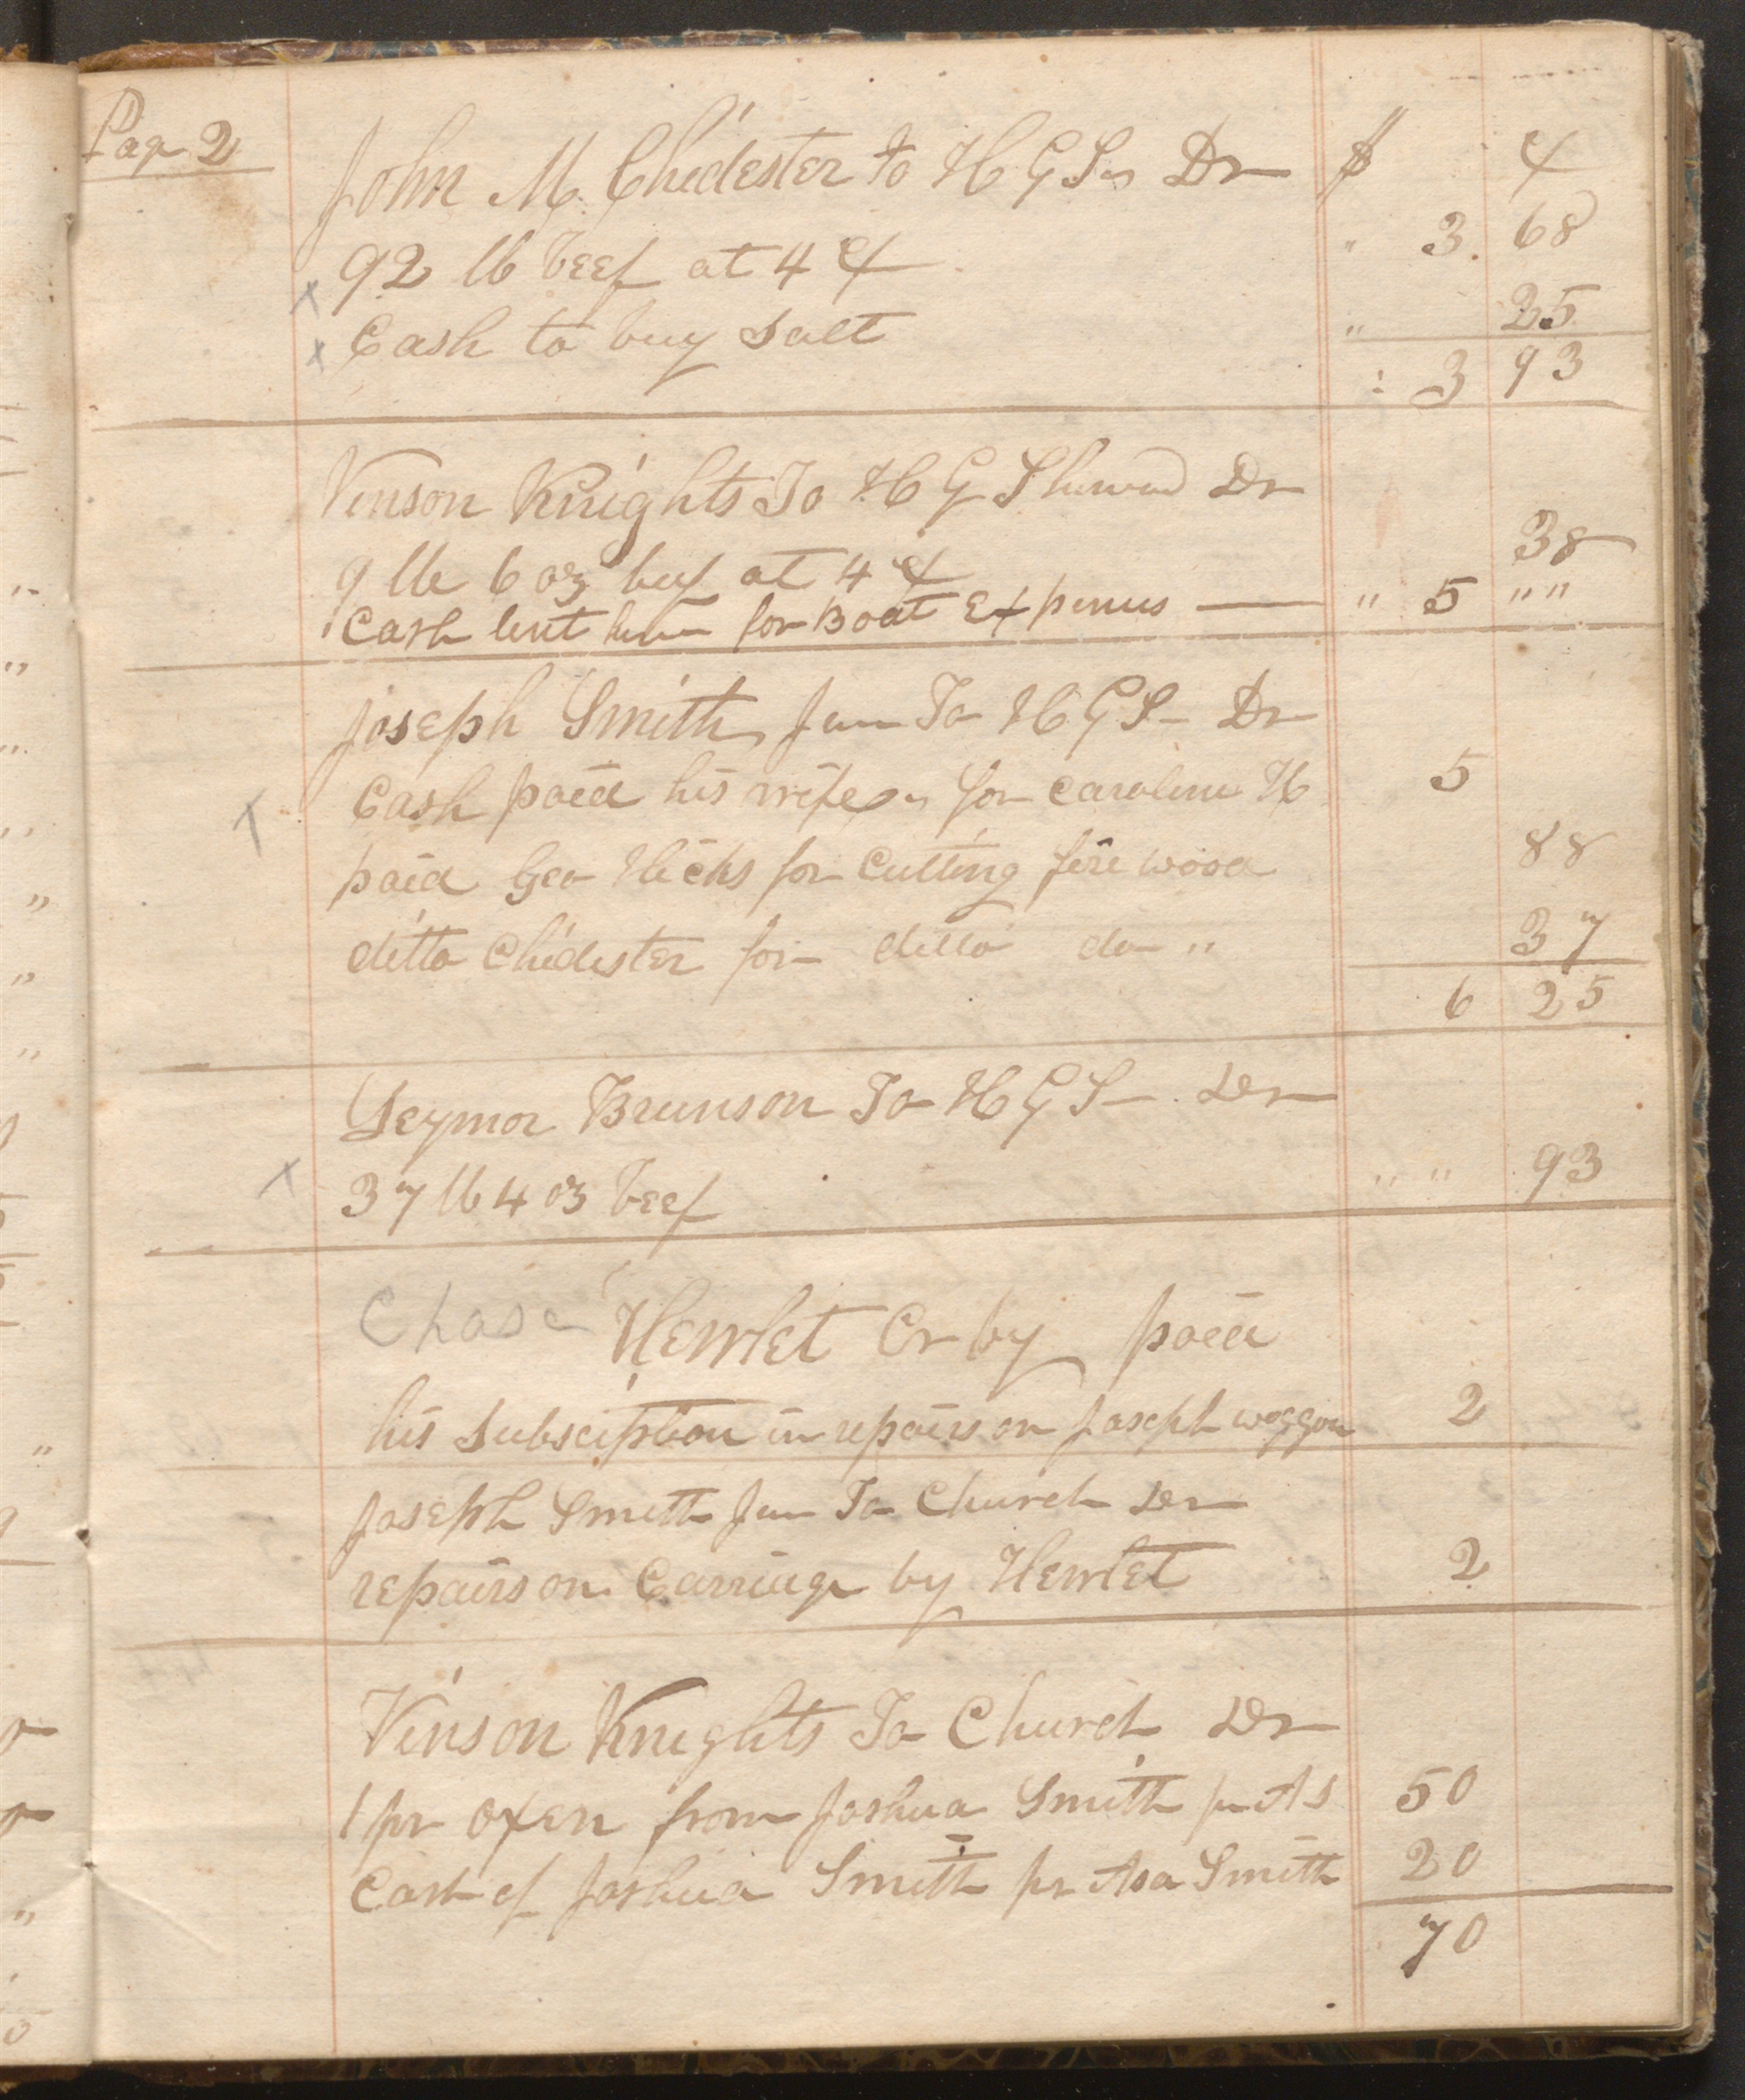 Page 2
John M. Chidester to H G S " Dr $ ¢
x 92 lb beef at 4 ¢ " 3. 68
x Cash to buy Salt " 25
: 3 93
Vinson Knights To H G Sherwood Dr
9 lb 6 oz beef at 4 ¢ 38
Cash lent him for Boat Expenses — " 5 " "
Joseph Smith Jun To H G S - Dr
x Cash paid his wife " for Caroline H 5
paid Geo Hicks for Cutting fire wood 88
ditto Chidester for ditto do " 37
6 25
Seymor Brunson To H G S - Dr
x 37 lb 4 oz beef " " 93
Chase Hewlet Cr by paid
his Subsciption in repairs on Joseph waggon 2
Joseph Smith Jun To Church Dr
repairs on Carriage by Hewlet 2
Vinson Knights To Church Dr
1 pr oxen from Joshua Smith pr A S 50
Cash of Joshua Smith pr Asa Smith 20
70